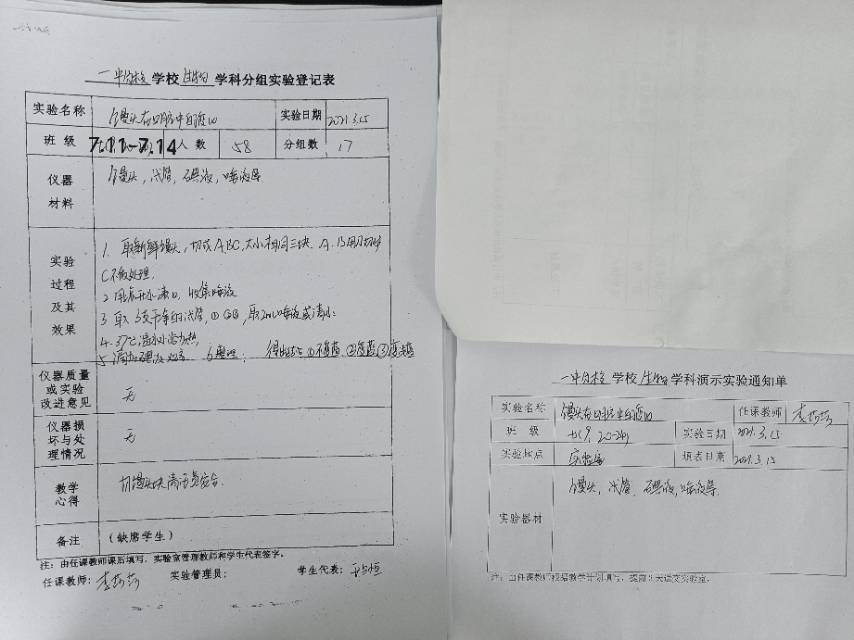 一中分校学校生物学科分组实验登记表
实验名称 馒头在口腔中的变化 实验日期 2021.3.15
班级 7.11-7.14 人数 58 分组数 17
仪器材料 馒头,试管,碘液,唾液等
实验过程及其效果
1. 取新鲜馒头,切成A.B.C.大小相同三块.A.B用刀切碎
C不做处理.
2 用凉开水漱口,收集唾液
3 取3支干净的试管,①②③,取2ml唾液或清水.
4. 37℃温水水浴加热
5 滴加碘液观察 6.整理: 得出结论①不变蓝 ②变蓝 ③变蓝
仪器质量或实验改进意见 无
仪器损坏与处理情况 无
教学心得 切馒头块需
备注 (缺席学生)
注:由任课教师课后填写,实验室管理教师和学生代表签字。
任课教师: 实验管理员: 学生代表:
一中分校学校生物学科演示实验通知单
实验名称 馒头在口腔中的变化 任课教师
班级 七(9. 实验日期 2021.3.15
实验地点 实验室 填表日期 2021.3.15
实验器材 馒头,试管,碘液,唾液等.
注:由任课教师根据教学计划填写,提前3天送交实验室。